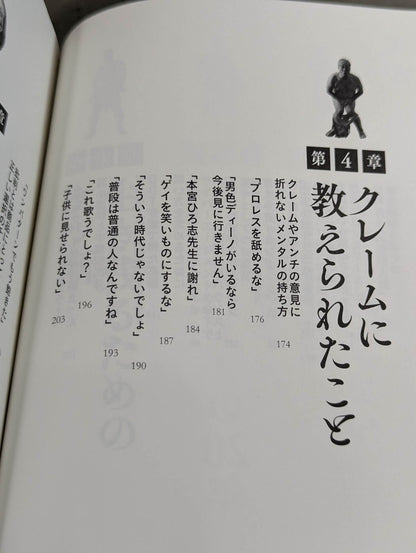 第4章
クレームに
教えられたこと
クレームやアンチの意見に
折れないメンタルの持ち方
174
「プロレスを舐めるな」
176
「男色ディーノがいるなら
今後見に行きません」
181
「本宮ひろ志先生に謝れ」
184
「ゲイを笑いものにするな」
187
「そういう時代じゃないでしょ」
190
「普段は普通の人なんですね」
193
「これ歌うでしょ？」
196
「子供に見せられない」
203